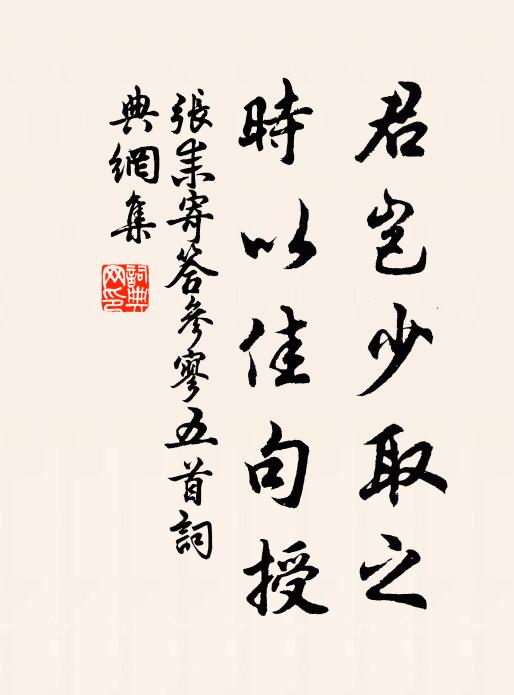 君豈少取之
時以佳句授
張耒寄答參寥五首詞
典網集
詞典
网印